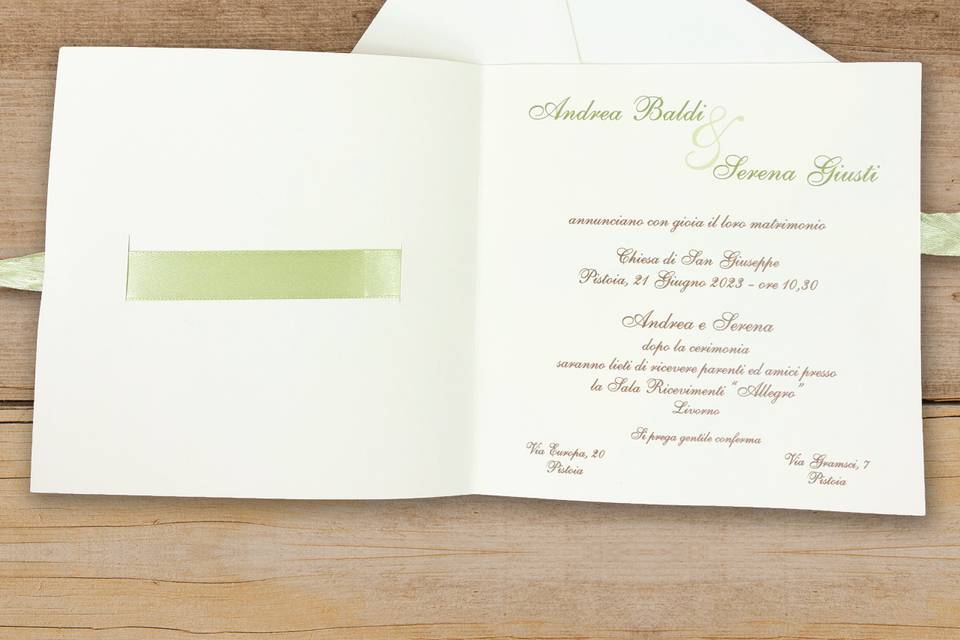 Andrea Baldi
&
Serena Giusti
annunciano con gioia il loro matrimonio
Chiesa di San Giuseppe
Pistoia, 21 Giugno 2023 - ore 10,30
Andrea e Serena
dopo la cerimonia
saranno lieti di ricevere parenti ed amici presso
la Sala Ricevimenti “Allegro”
Livorno
Si prega gentile conferma
Via Europa, 20
Pistoia
Via Gramsci, 7
Pistoia